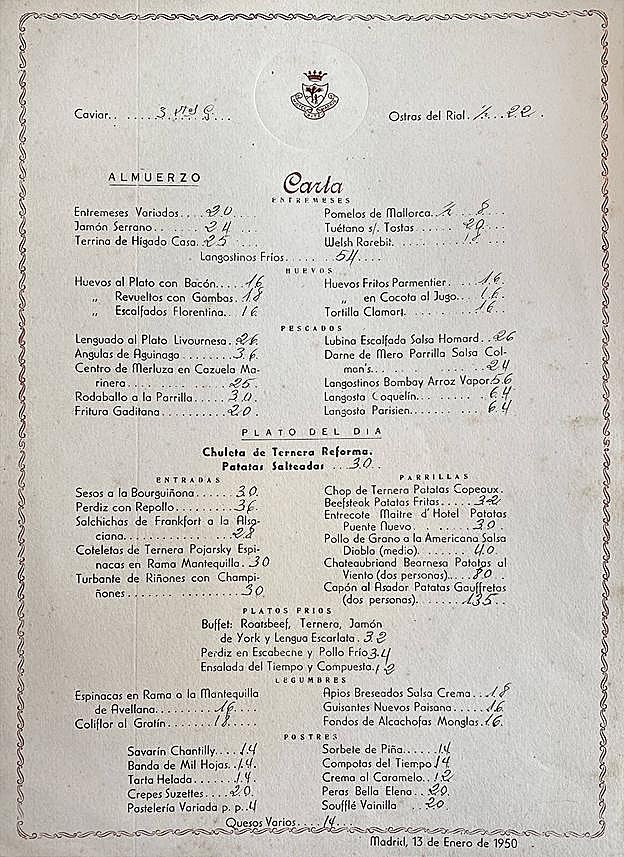 Caviar. . 3. G. . . .
Ostras del Rial. ½ . . 22 .
ALMUERZO
Carta
ENTREMESES
Entremeses Variados. . . . 30 . .
Jamón Serrano. . . . 24 . . .
Terrina de Higado Casa. 25 . . .
Pomelos de Mallorca. ½ . . 8 .
Tuétano s/. Tostas . . . . . 20 . .
Welsh Rarebit. . . . . . . 18 . .
Langostinos Fríos. . . . . 54 . .
HUEVOS
Huevos al Plato con Bacón. . . . 16
„ Revueltos con Gambas. 18
„ Escalfados Florentina. . 16
Huevos Fritos Parmentier . . . 16 .
„ en Cocota al Jugo. . . 16 .
Tortilla Clamart. . . . . . . 16 . .
PESCADOS
Lenguado al Plato Livournesa. . 26 .
Angulas de Aguinaga . . . . 36 . .
Centro de Merluza en Cazuela Ma-
rinera . . . . . . . . 25 . . .
Rodaballo a la Parrilla . . . . 30 . .
Fritura Gaditana . . . . . 20 . .
Lubina Escalfada Salsa Homard . . 26
Darne de Mero Parrilla Salsa Col-
man's. . . . . . . . . . 24
Langostinos Bombay Arroz Vapor. 56
Langosta Coquelín. . . . . . . 64
Langosta Parisien. . . . . . . 64
PLATO DEL DIA
Chuleta de Ternera Reforma.
Patatas Salteadas . . . 30 . .
ENTRADAS
Sesos a la Bourguiñona . . . . . 30 .
Perdiz con Repollo . . . . . . 36 .
Salchichas de Frankfort a la Alsa-
ciana. . . . . . . . . 28
Coteletas de Ternera Pojarsky Espi-
nacas en Rama Mantequilla. . 30
Turbante de Riñones con Champi-
ñones . . . . . . . . . . 30 .
PARRILLAS
Chop de Ternera Patatas Copeaux.
Beefsteak Patatas Fritas. . . . 32 . .
Entrecote Maitre d'Hotel Patatas
Puente Nuevo. . . . . . 30 . .
Pollo de Grano a la Americana Salsa
Diabla (medio). . . . . . 40 . .
Chateaubriand Bearnesa Patatas al
Viento (dos personas). . . . 80 . .
Capón al Asador Patatas Gauffretas
(dos personas). . . . . . . 135 . .
PLATOS FRIOS
Buffet: Roatsbeef, Ternera, Jamón
de York y Lengua Escarlata . 32
Perdiz en Escabeche y Pollo Frío 34
Ensalada del Tiempo y Compuesta. 12
LEGUMBRES
Espinacas en Rama a la Mantequilla
de Avellana. . . . . 16 . . . .
Coliflor al Gratín. . . . . . 18 . . .
Apios Breseados Salsa Crema. . . 18
Guisantes Nuevos Paisana. . . . 16
Fondos de Alcachofas Monglas. 16 .
POSTRES
Savarín Chantilly. . . . 14
Banda de Mil Hojas. . 14 .
Tarta Helada. . . . . 14 .
Crepes Suzettes. . . . 20 .
Pastelería Variada p. p. 4
Sorbete de Piña. . . . . 14
Compotas del Tiempo 14
Crema al Caramelo. . 12
Peras Bella Elena . . 20 .
Soufflé Vainilla . . 20 .
Quesos Varios. . . . 14 . .
Madrid, 13 de Enero de 1950